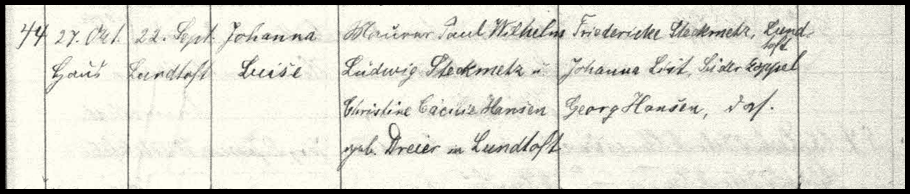 44 27. Okt. 22. Sept. Johanna Maurer Paul Wilhelm Friedericke Steckmetz, Lund-
toft
Haus Lundtoft Luise Ludwig Steckmetz u. Johanna List, Süder Goppel
Christine Cäcilie Hansen Georg Hansen, das.
geb. Dreier in Lundtoft